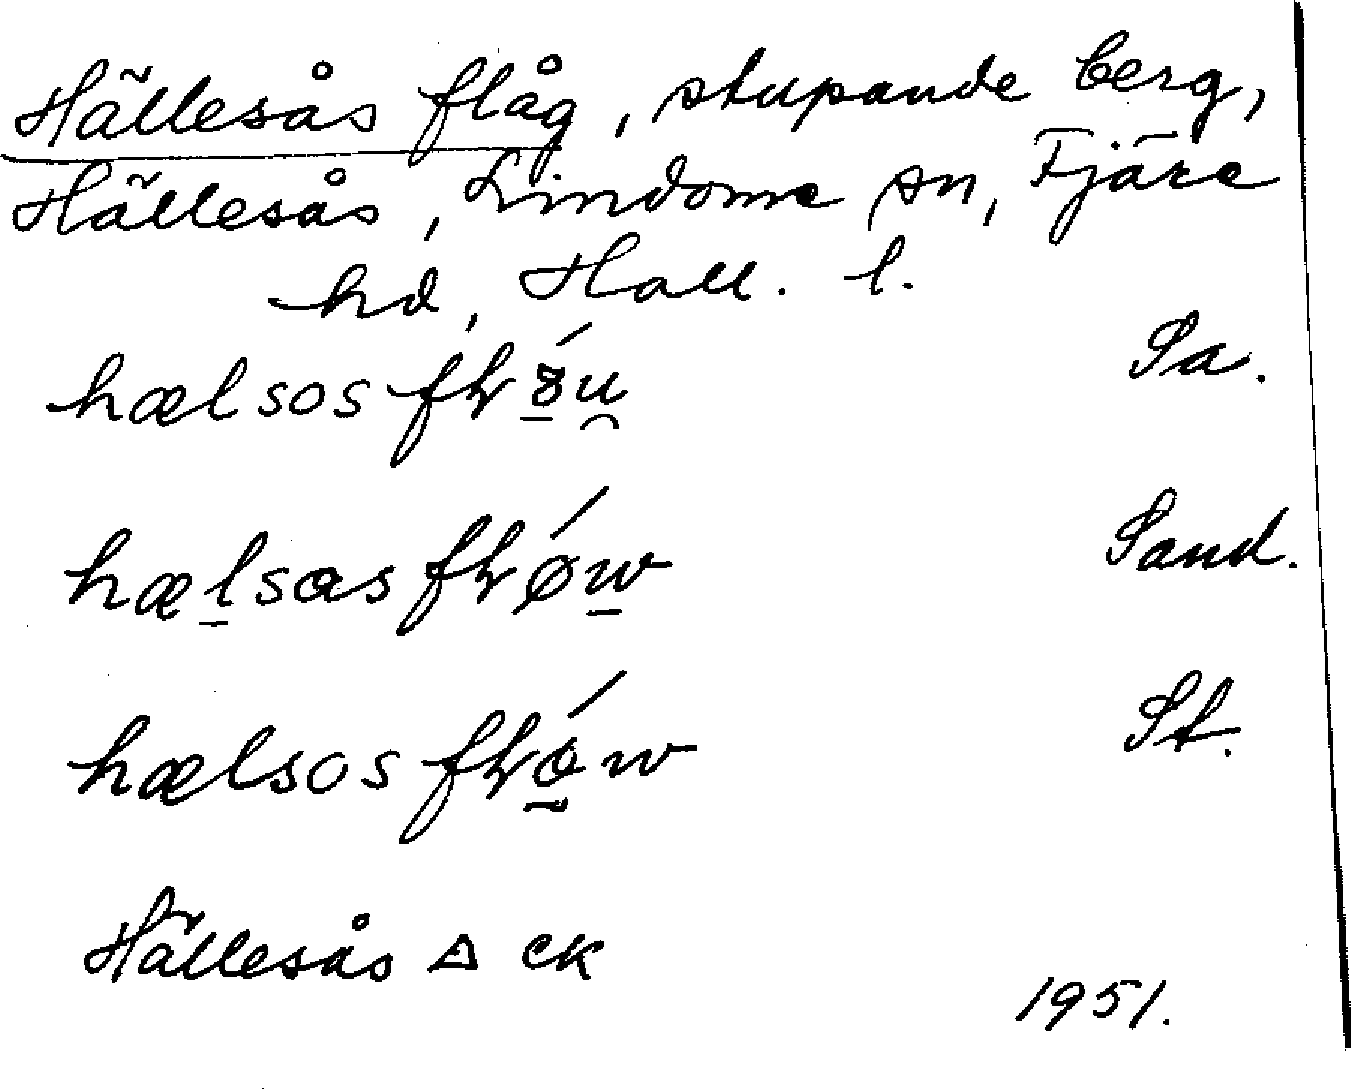 Hällesås flåg, stupande berg,
Hällesås, Lindome sn, Fjäre
hd, Hall. l.
hælsos Sa.
Sand.
hælsos St.
Hällesås △ ek
1951.